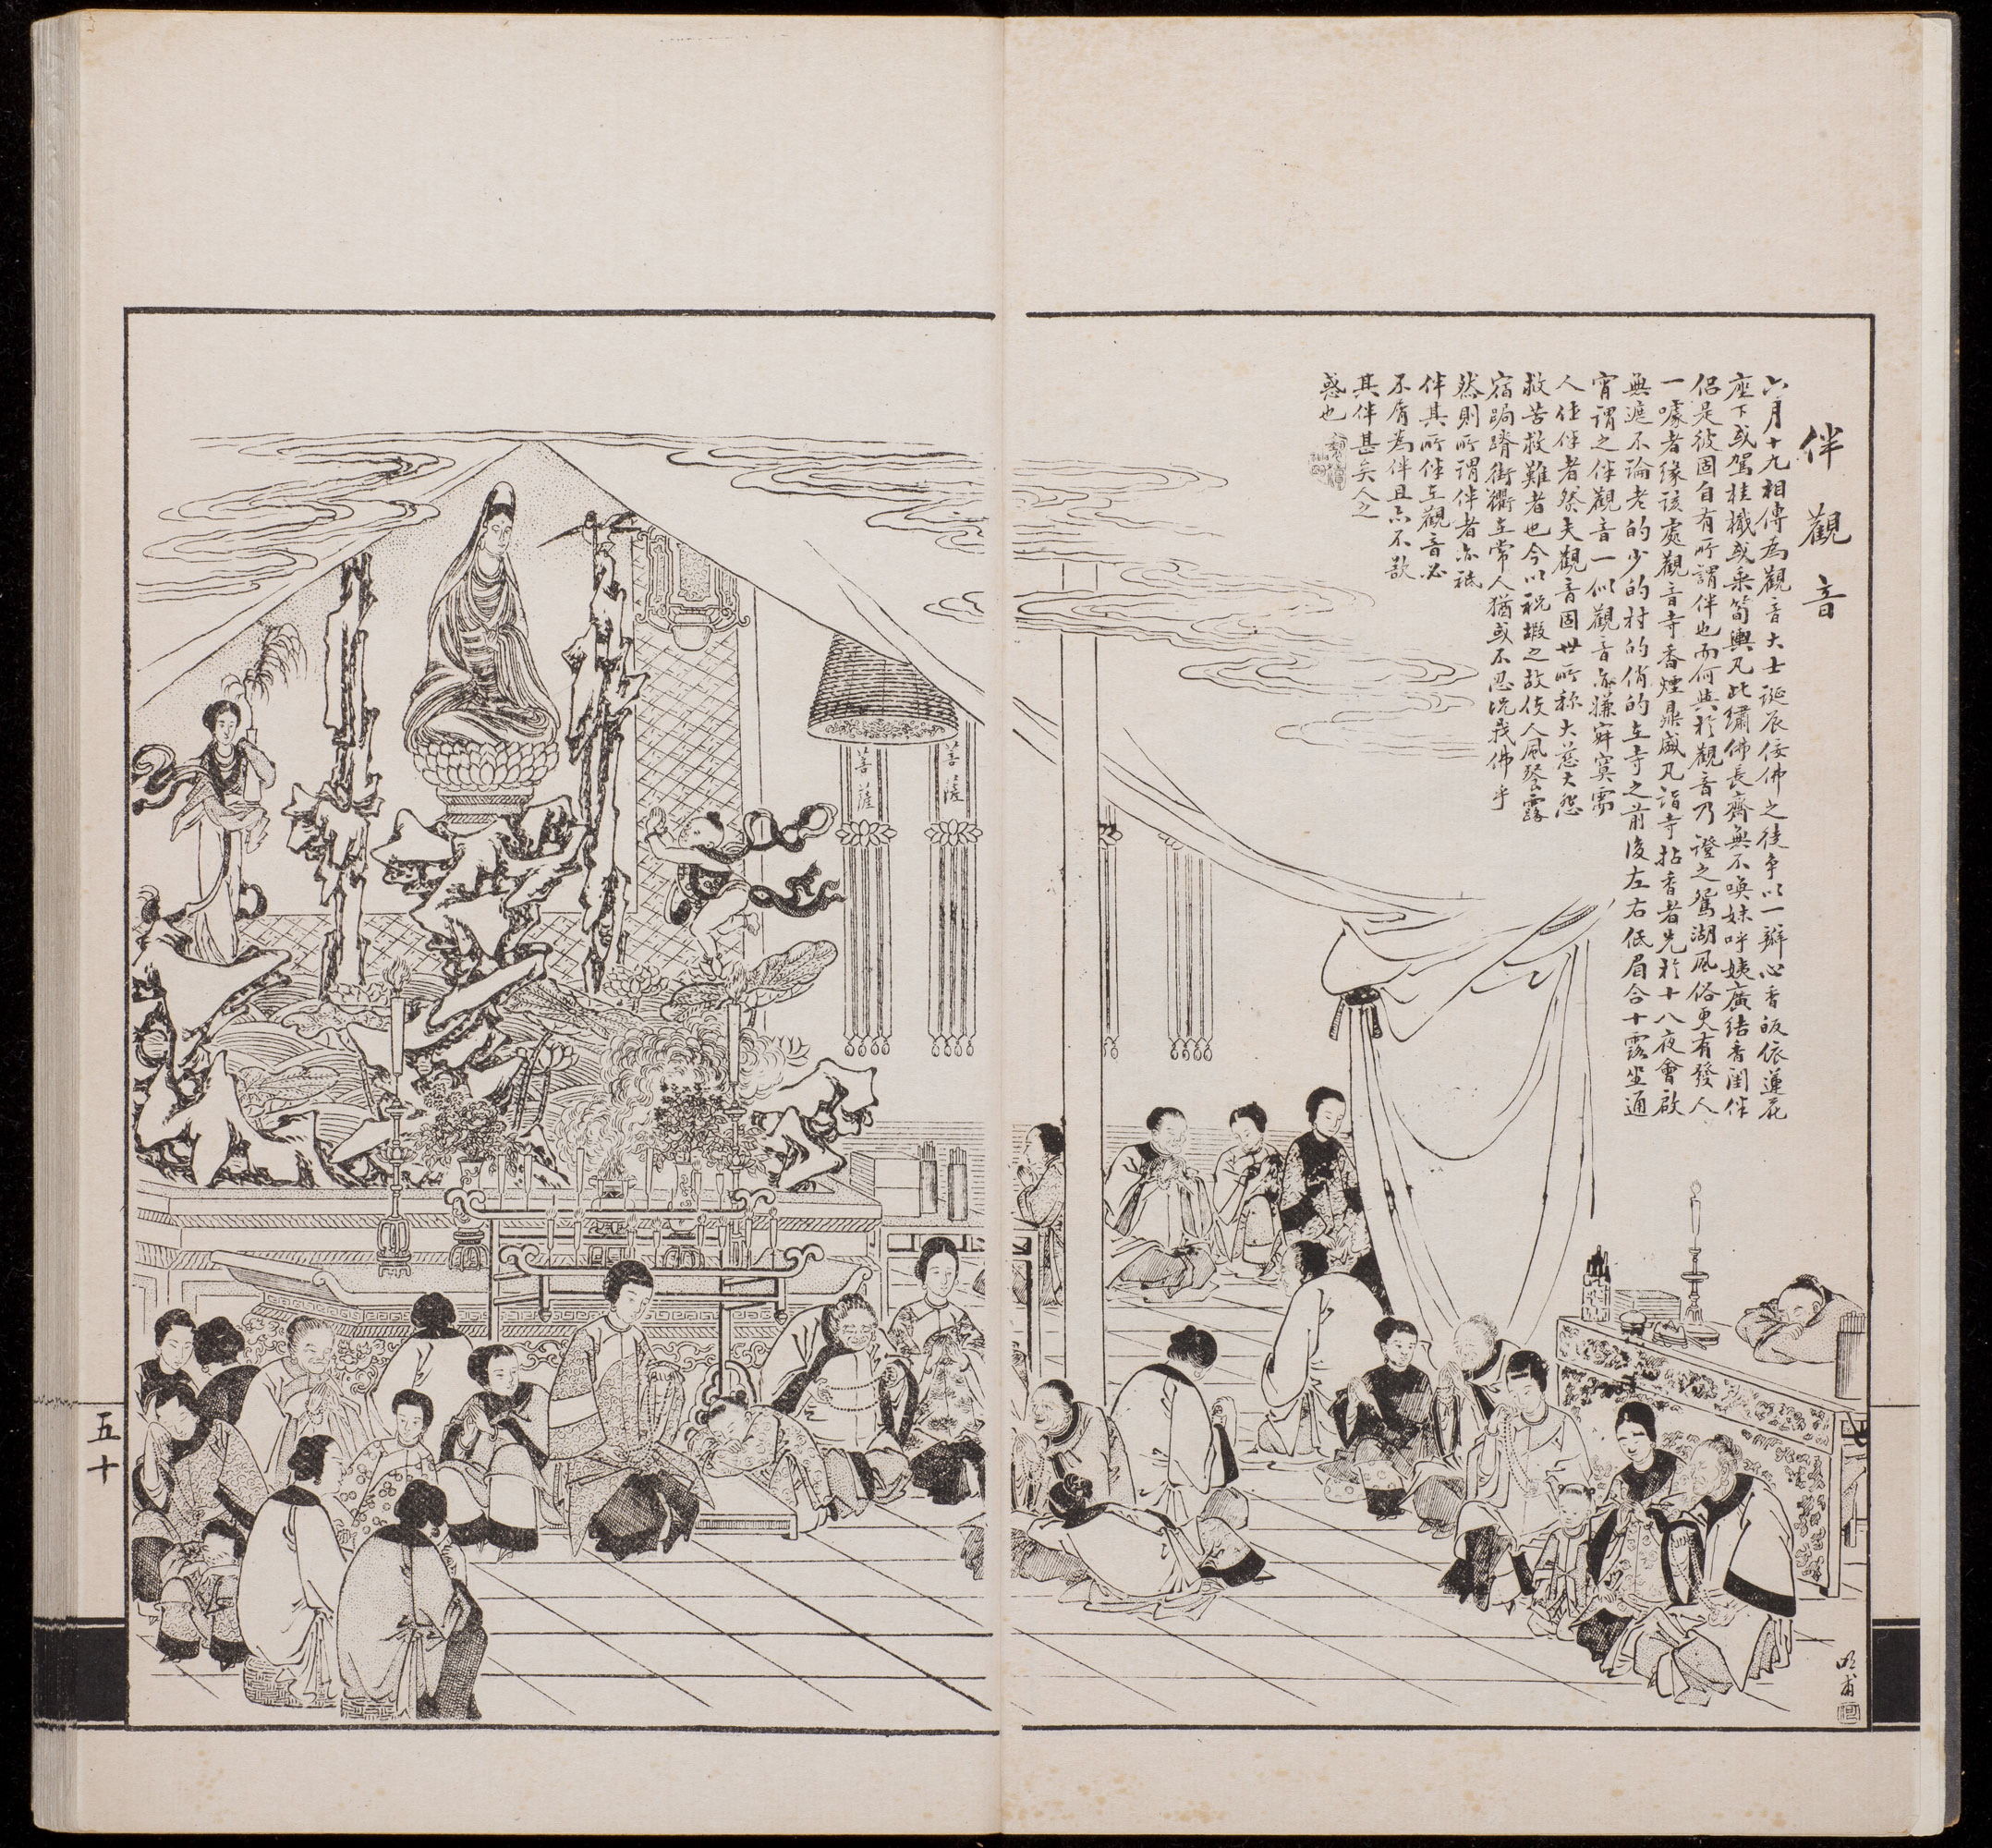 伴觀音
六月十九相傳為觀音大士誕辰佞佛之徒爭以一瓣心香皈依蓮花
座下或駕桂檝或乘筍輿凡此繡佛長齋無不喚妹呼姨廣結香閨伴
侶是彼固自有所謂伴也而何與於觀音乃證之鴛湖風俗更有發人
一噱者緣該處觀音寺香煙鼎盛凡詣寺拈香者先於十八夜會啟
無遮不論老的少的村的俏的在寺之前後左右低眉合十露坐通
宵謂之伴觀音一似觀音亦嫌寂寞需
人作伴者然夫觀音固世所稱大慈大悲
救苦救難者也今以祝嘏之故使人風餐露
宿跼蹐街衢在常人猶或不忍況我佛乎
然則所謂伴者亦祇
伴其所伴在觀音必
不屑為伴且亦不歆
其伴甚矣人之
惑也
菩薩
菩薩
明甫
五十